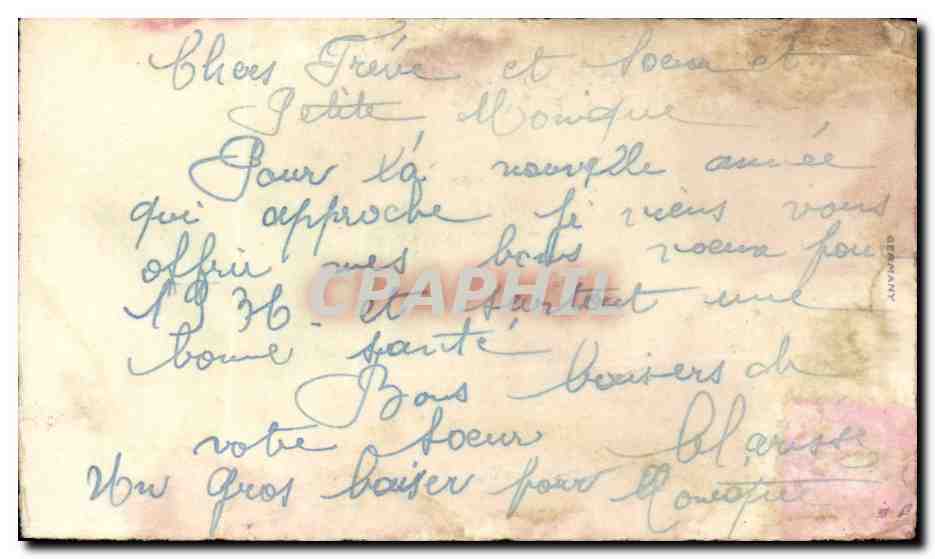 Chers Frére et Soeur et
Petite Monique
Pour la nouvelle année
qui approche je viens vous
offrir mes bons voeux pour
1936 et surtout une
bonne santé
Bons baisers de
votre soeur Clarisse
Un gros baiser pour Monique
GERMANY
CRAPHIL